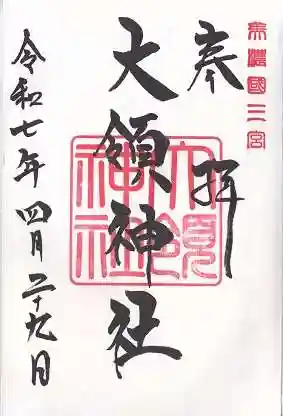 美濃國三宮
奉拝
大領神社
大領神社
令和七年四月二十九日